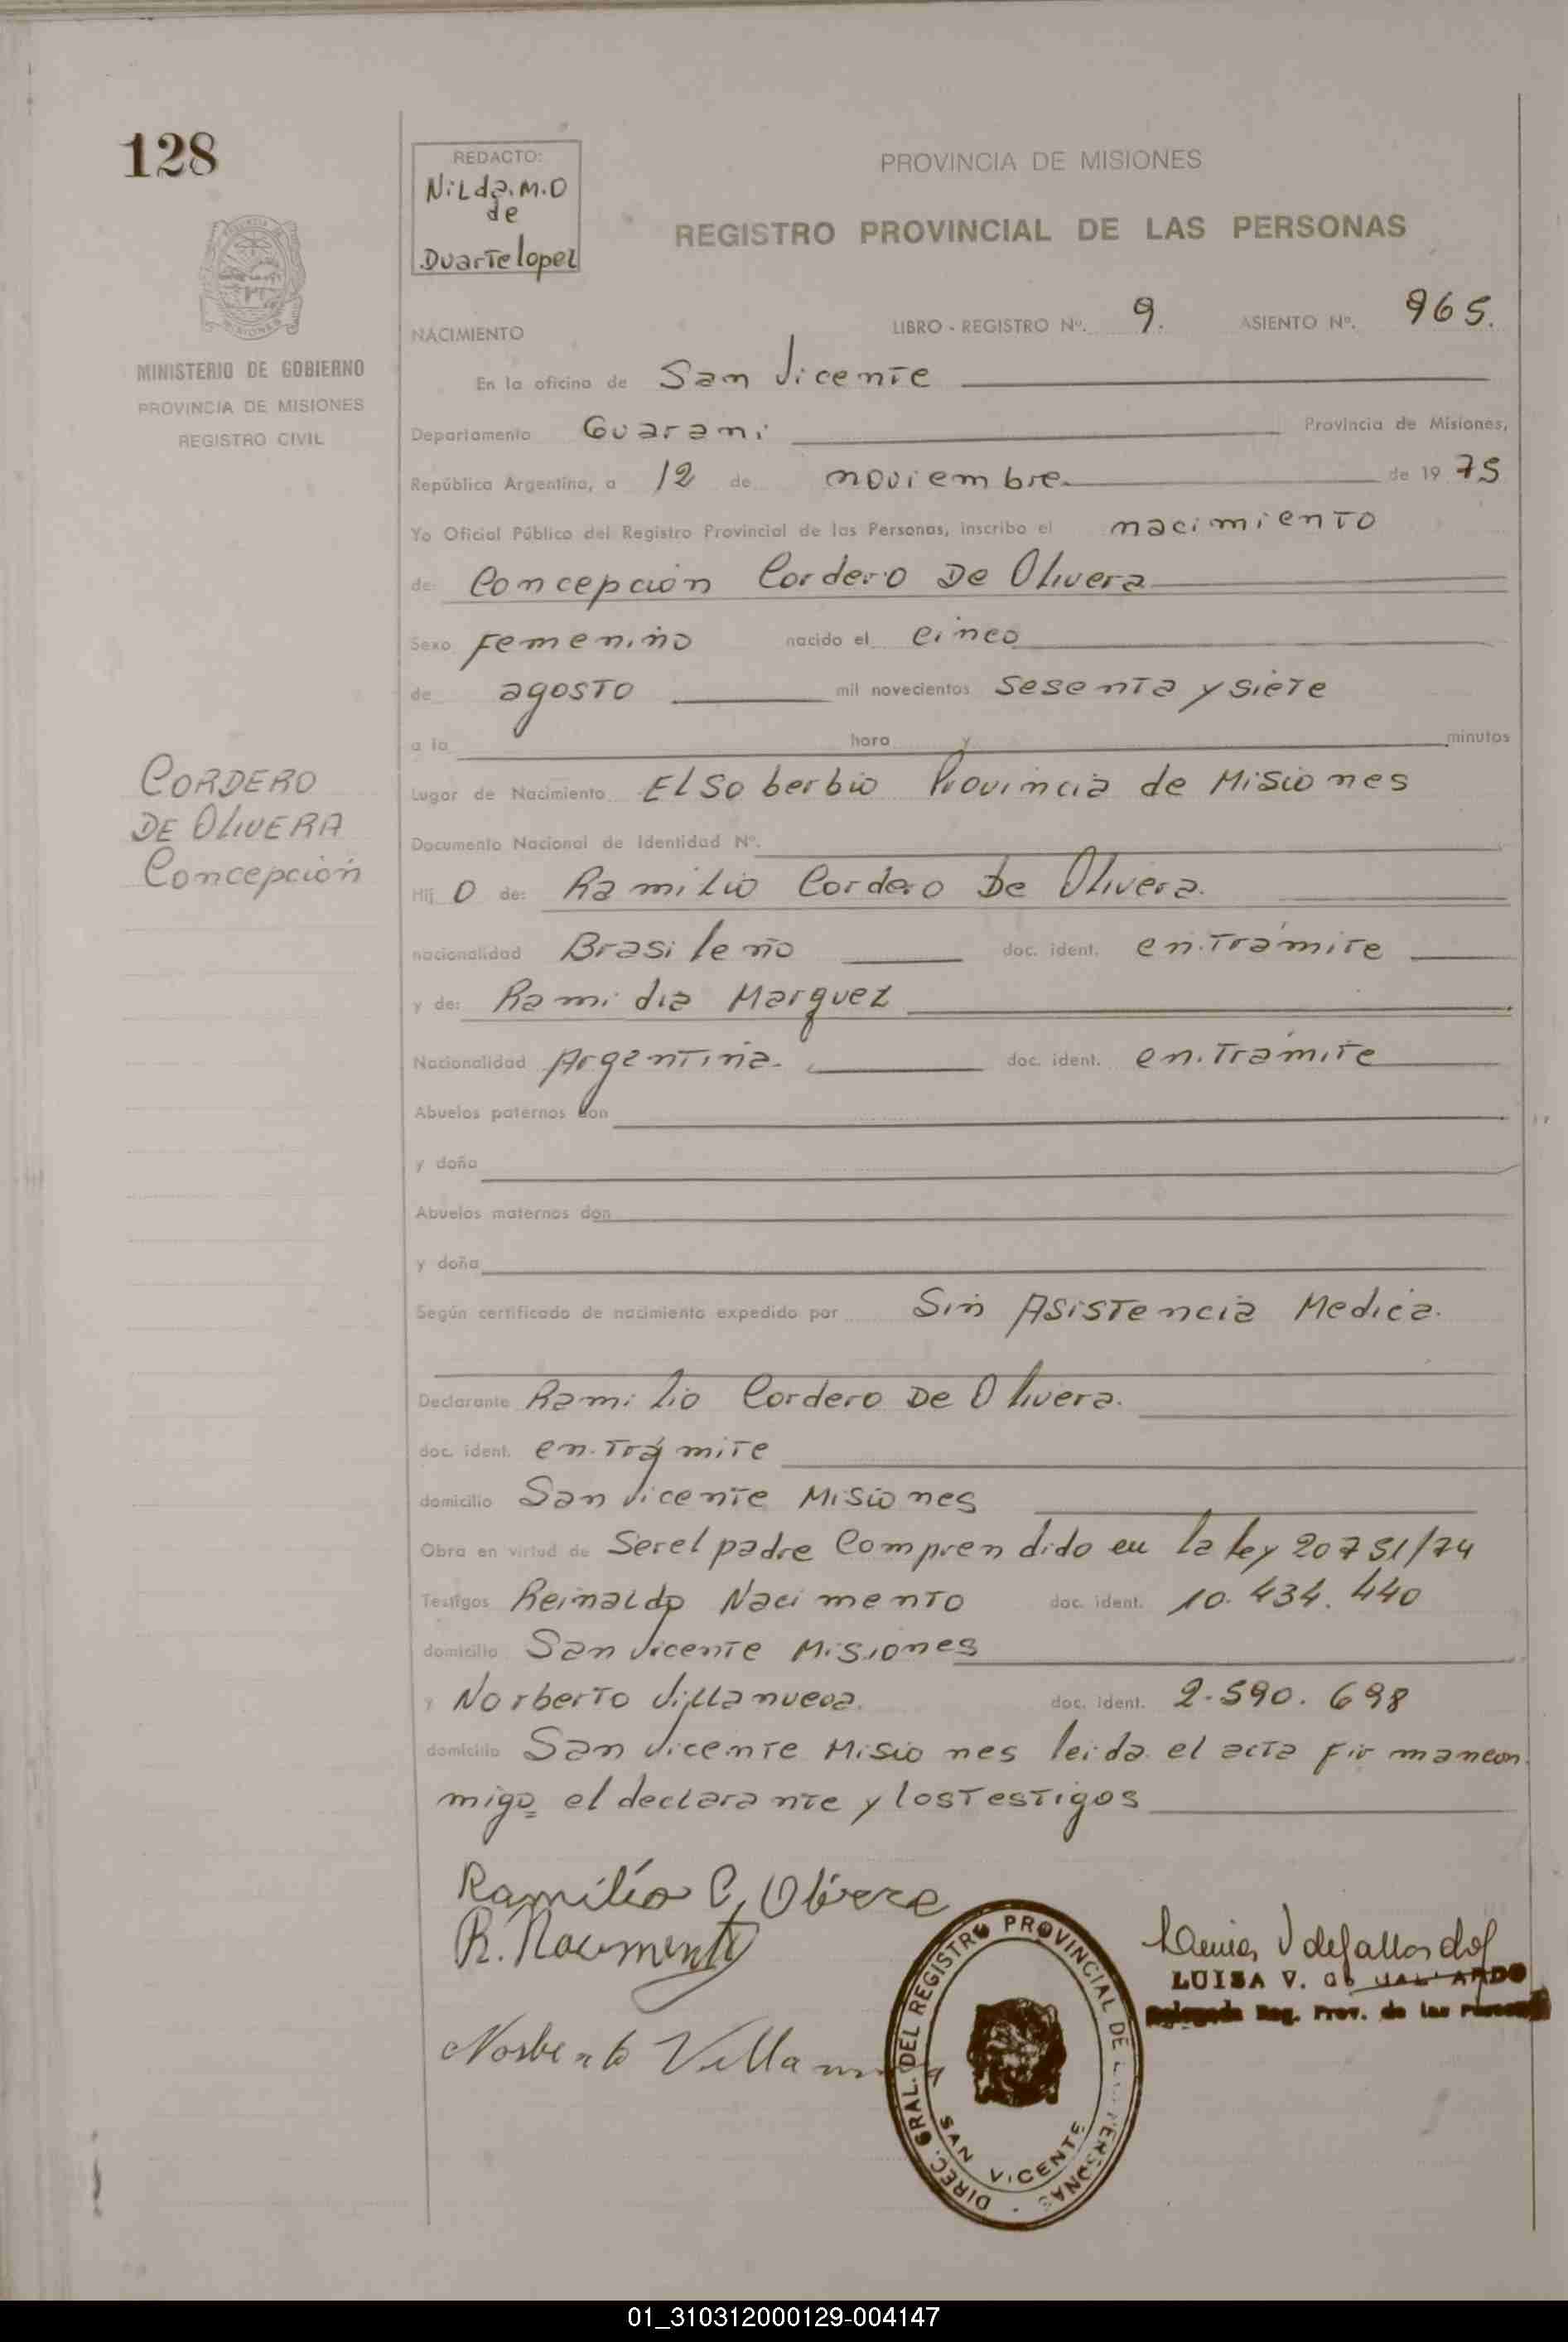 128
REDACTO:
Nilda. M. D
de
Duarte lopez
PROVINCIA DE MISIONES
REGISTRO PROVINCIAL DE LAS PERSONAS
MINISTERIO DE GOBIERNO
PROVINCIA DE MISIONES
REGISTRO CIVIL
NACIMIENTO LIBRO - REGISTRO Nº. 9. ASIENTO Nº. 965.
En la oficina de San Vicente
Departamento Guarani Provincia de Misiones,
República Argentina, a 12 de noviembre de 19 75
Yo Oficial Público del Registro Provincial de las Personas, inscribo el nacimiento
de: Concepción Cordero De Olivera
Sexo Femenino nacido el cinco
de agosto mil novecientos sesenta y siete
a la hora y minutos
CORDERO
DE OLIVERA
Concepción
Lugar de Nacimiento El Soberbio Provincia de Misiones
Documento Nacional de Identidad Nº.
Hij O de: Ramilio Cordero De Olivera.
nacionalidad Brasileño doc. ident. en. Trámite
y de: Ramidia Marquez
Nacionalidad Argentina. doc. ident. en. Trámite
Abuelos paternos don
y doña
Abuelos maternos don
y doña
Según certificado de nacimiento expedido por Sin Asistencia Medica.
Declarante Ramilio Cordero De Olivera.
doc. ident. en. Trámite
domicilio San Vicente Misiones
Obra en virtud de Ser el padre Comprendido en la ley 20751/74
Testigos Reinaldo Nacimento doc. ident. 10. 434. 440
domicilio San Vicente Misiones
y Norberto Villanueva. doc. ident. 2.590. 698
domicilio San Vicente Misiones leida el acta firman con
migo el declarante y los Testigos
Ramilio C, Olivera
R. Nacimento
Norberto Villanueva
DIREC. GRAL. DEL REGISTRO PROVINCIAL DE LAS PERSONAS
SAN VICENTE
LUISA V. de GALLARDO
Delegada Reg. Prov. de las Personas
01_310312000129-004147